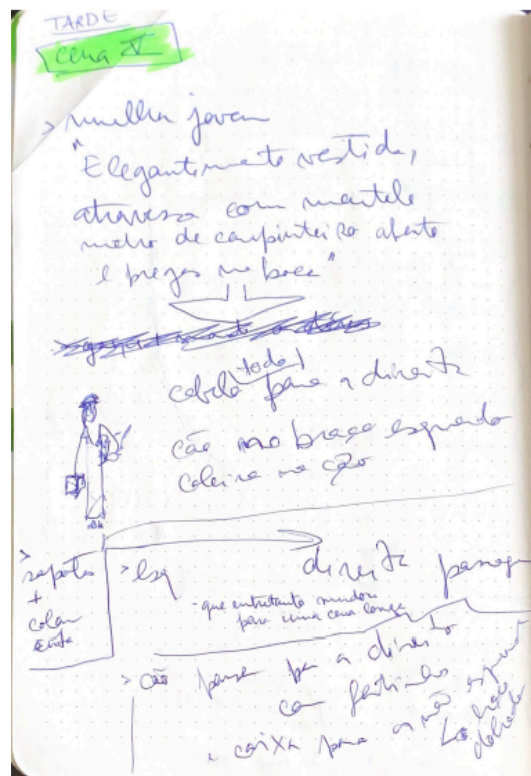 TARDE
cena IV
> mulher jovem
"Elegantemente vestida,
atravessa com martelo
metro de carpinteiro aberto
e pregos na boca"
cabelo todo! para a direita
cão no braço esquerdo
coleira no cão
> sapatos
+
colar
> esq direita
- que entretanto mudou
para uma cena longa
> cão passa para a direita
com
e caixa para a mão esquerda